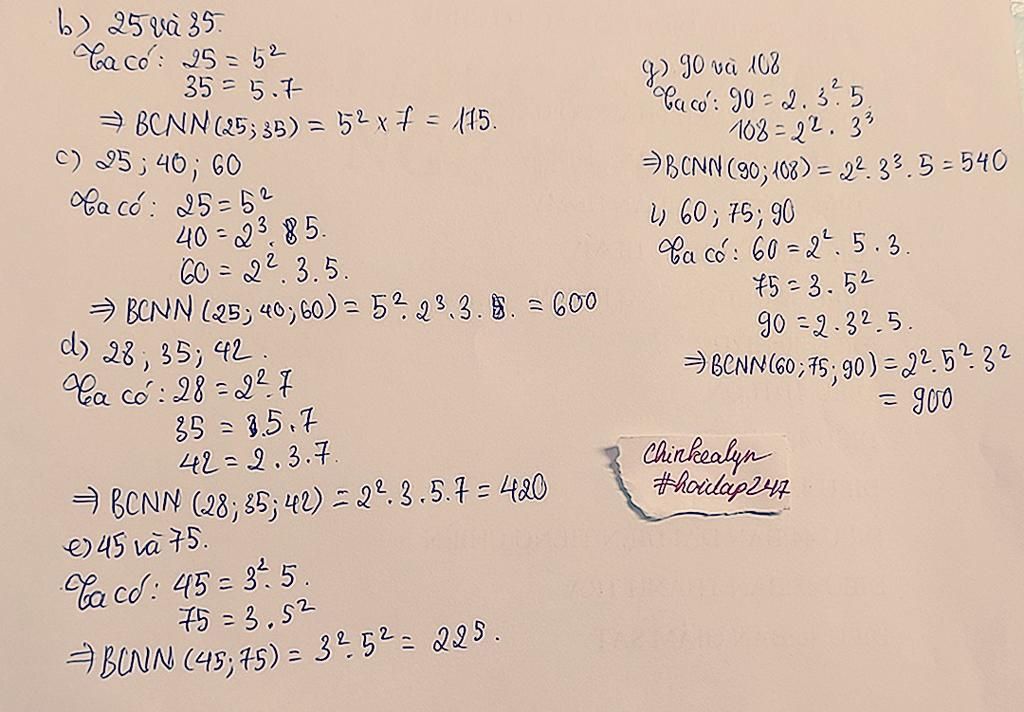 b) 25 và 35.
Ta có: 25 = 5²
35 = 5.7
⇒ BCNN(25;35) = 5² x 7 = 175.
c) 25 ; 40 ; 60
Ta có: 25 = 5²
40 = 2³. 5.
60 = 2². 3. 5.
⇒ BCNN (25; 40; 60) = 5². 2³. 3. = 600
d) 28 ; 35 ; 42.
Ta có: 28 = 2².7
35 = 5.7
42 = 2.3.7.
⇒ BCNN (28; 35; 42) = 2². 3. 5. 7 = 420
e) 45 và 75.
Ta có: 45 = 3². 5.
75 = 3. 5²
⇒ BCNN (45; 75) = 3². 5² = 225.
g) 90 và 108
Ta có: 90 = 2. 3². 5.
108 = 2². 3³
⇒ BCNN (90; 108) = 2². 3³. 5 = 540
i, 60 ; 75 ; 90
Ta có: 60 = 2². 5. 3.
75 = 3. 5²
90 = 2. 3². 5.
⇒ BCNN(60; 75; 90) = 2². 5². 3²
= 900
chinkealyn
#hoidap247